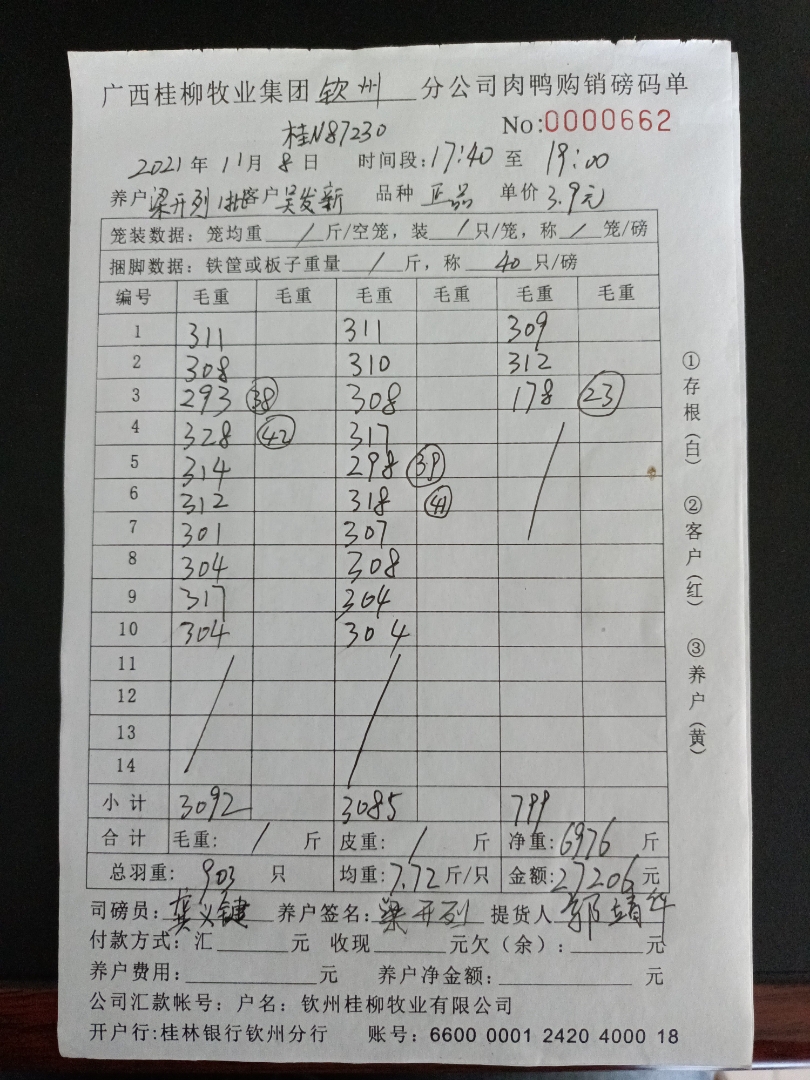 广西桂柳牧业集团 钦州 分公司肉鸭购销磅码单
桂N87230 No:0000662
2021年11月8日 时间段:17:40至19:00
养户梁开列1批客户吴发新 品种 正品 单价3.9元
笼装数据：笼均重 / 斤/空笼，装 / 只/笼，称 / 笼/磅
捆脚数据：铁筐或板子重量 / 斤，称 40 只/磅
编号 毛重 毛重 毛重 毛重 毛重 毛重
1 311 311 309
2 308 310 312
3 293 38 308 178 23
4 328 42 317 /
5 314 298 39
6 312 318 41
7 301 307
8 304 308
9 317 304
10 304 304
11 / /
12
13
14
小计 3092 3085 799
合计 毛重: / 斤 皮重: / 斤 净重:6976 斤
总羽重: 903 只 均重:7.72斤/只 金额:27206元
司磅员: 义键 养户签名:梁开列 提货人 郭靖
付款方式：汇 元 收现 元欠（余）： 元
养户费用: 元 养户净金额: 元
公司汇款帐号：户名：钦州桂柳牧业有限公司
开户行:桂林银行钦州分行 账号：6600 0001 2420 4000 18
①存根(白) ②客户(红) ③养户(黄)